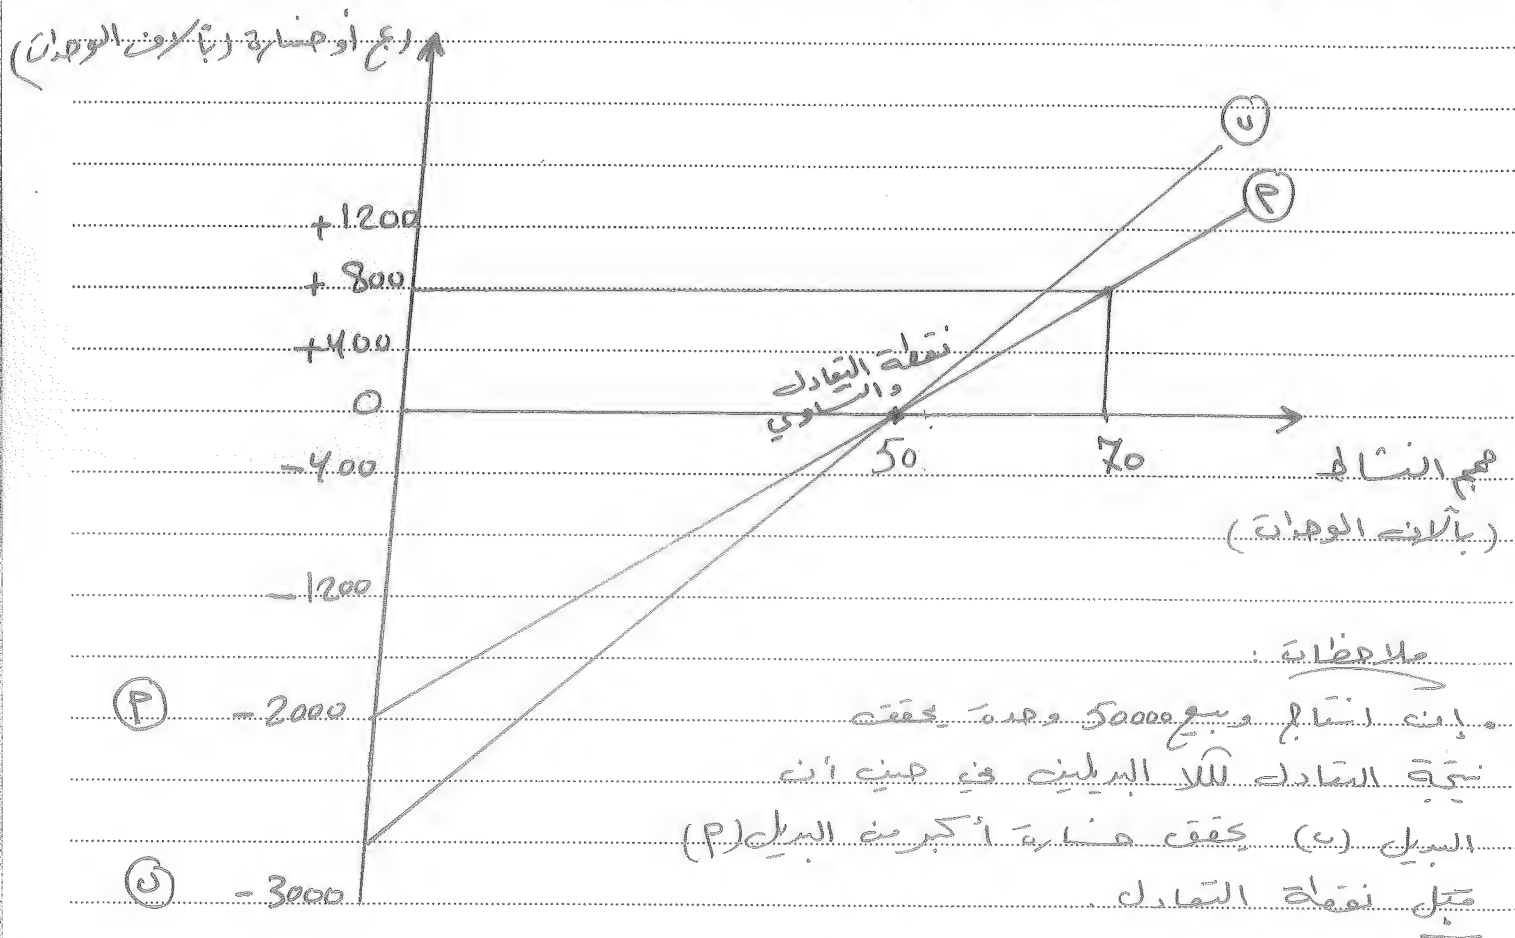 ربح أو خسارة (بآلاف الوحدات)
ب
م
+1200
+800
+400
نقطة التعادل
والتساوي
0
50
70
-400
حجم النشاط
(بآلاف الوحدات)
-1200
ملاحظات :
م -2000
• إن انتاج وبيع 50000 وحدة يحقق
نتيجة التعادل لكلا البديلين في حين أن
البديل (ب) يحقق خسارة أكبر من البديل (م)
ب -3000
قبل نقطة التعادل .